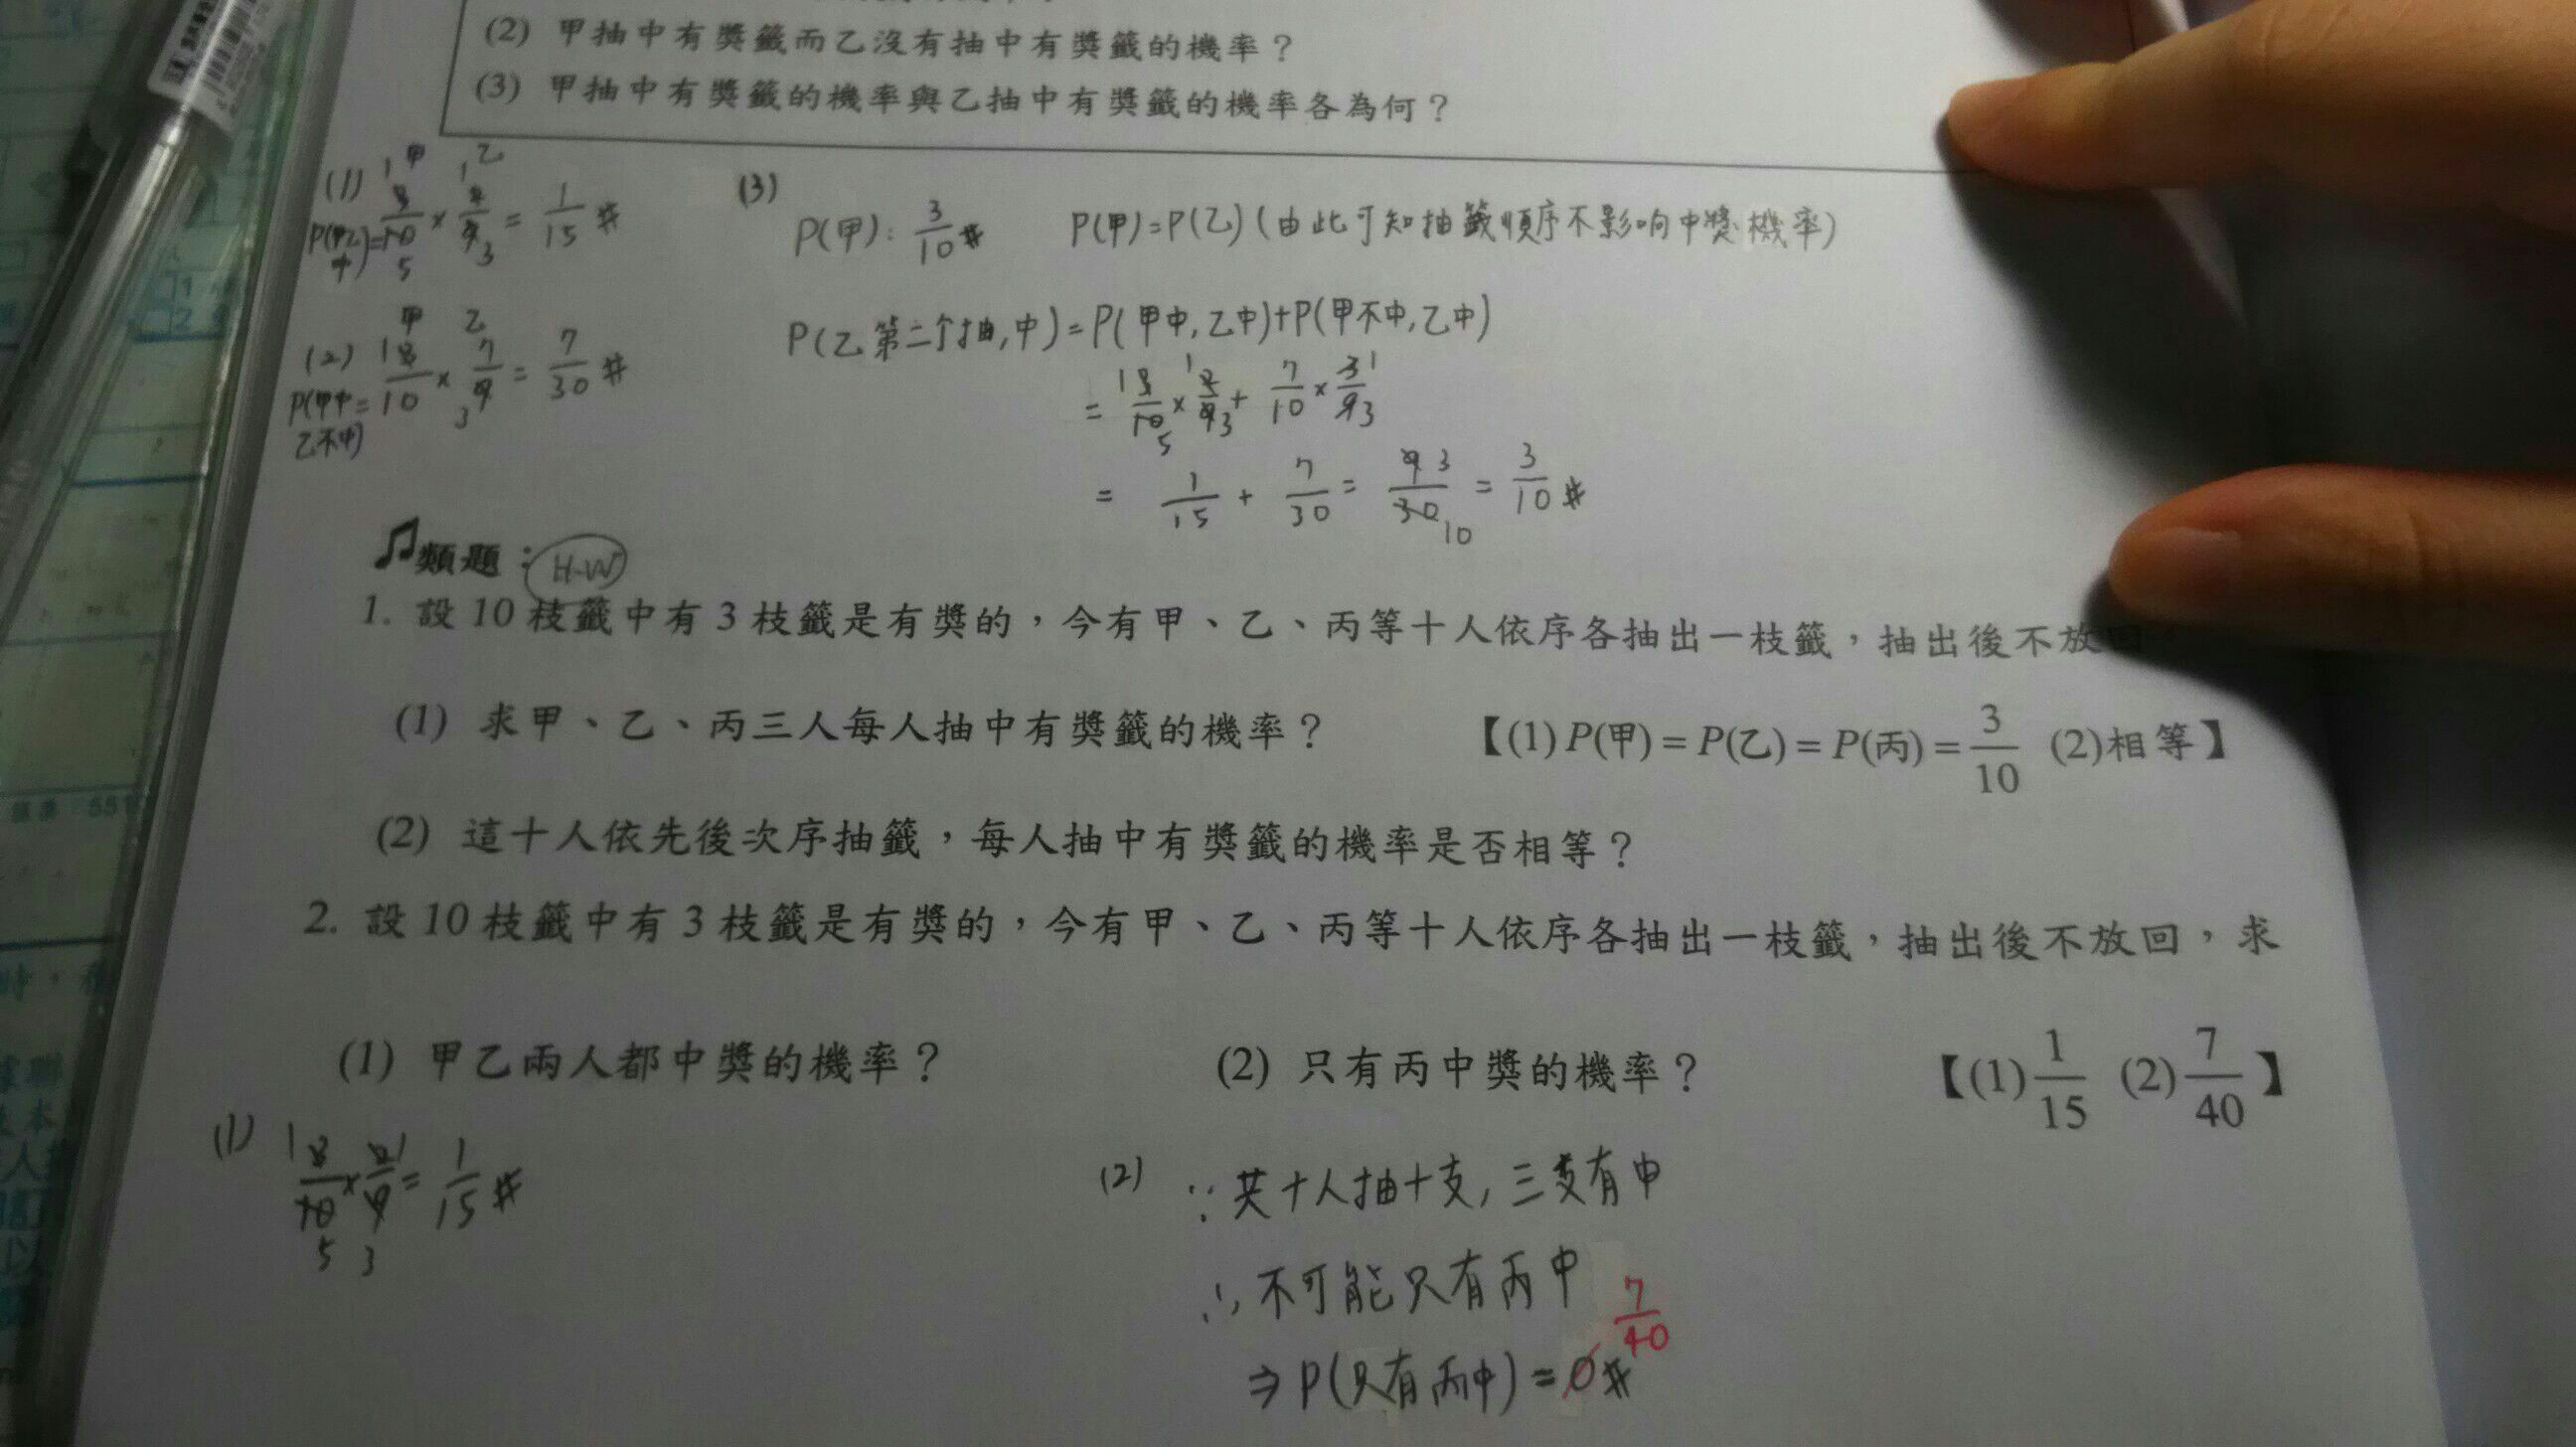 (2) 甲抽中有獎籤而乙沒有抽中有獎籤的機率？
(3) 甲抽中有獎籤的機率與乙抽中有獎籤的機率各為何？
(1) P(甲乙中)= 3/10 × 2/9 = 1/15 #
(2) P(甲中乙不中)= 3/10 × 7/9 = 7/30 #
(3) P(甲): 3/10 # P(甲)=P(乙) (由此可知抽籤順序不影响中獎機率)
P(乙第二个抽,中)=P(甲中,乙中)+P(甲不中,乙中)
= 3/10 × 2/9 + 7/10 × 3/9
= 1/15 + 7/30 = 9/30 = 3/10 #
♫類題： H-W
1. 設 10 枝籤中有 3 枝籤是有獎的，今有甲、乙、丙等十人依序各抽出一枝籤，抽出後不放回，
(1) 求甲、乙、丙三人每人抽中有獎籤的機率？ 【(1) P(甲) = P(乙) = P(丙) = 3/10 (2)相等】
(2) 這十人依先後次序抽籤，每人抽中有獎籤的機率是否相等？
2. 設 10 枝籤中有 3 枝籤是有獎的，今有甲、乙、丙等十人依序各抽出一枝籤，抽出後不放回，求
(1) 甲乙兩人都中獎的機率？ (2) 只有丙中獎的機率？ 【(1) 1/15 (2) 7/40】
(1) 3/10 × 2/9 = 1/15 #
(2) ∵共十人抽十支,三支有中
∴不可能只有丙中
⇒ P(只有丙中) = 0 # 7/40